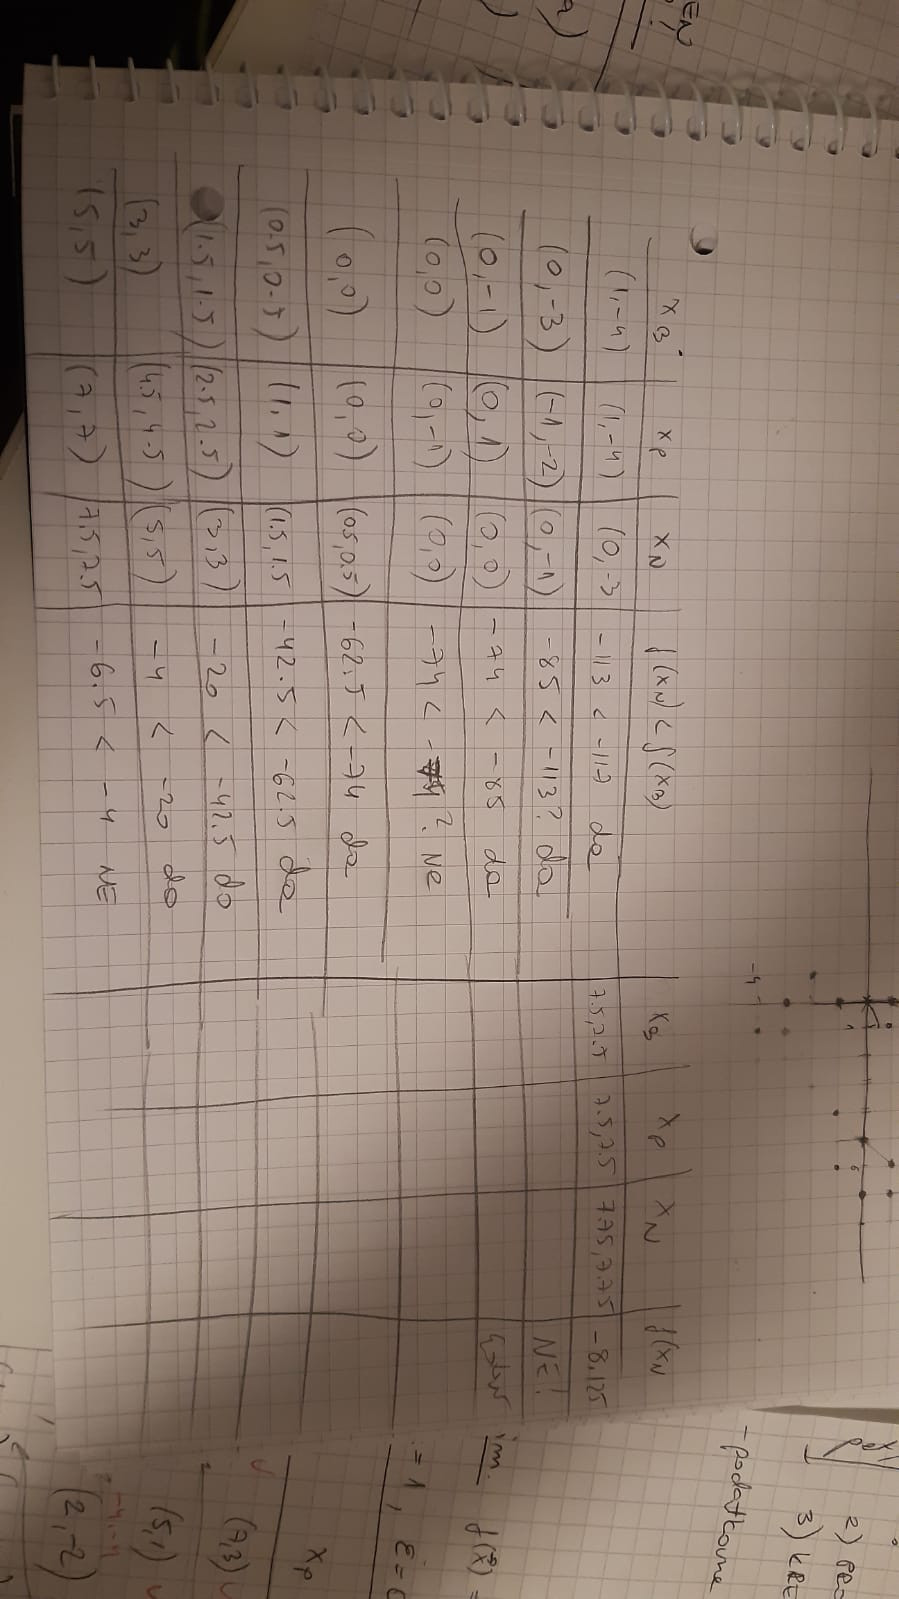 x_B x_P x_N f(x_N) < f(x_B)
(1,-4) (1,-4) (0,-3 -113 < -117 da
(0,-3) (-1,-2) (0,-1) -85 < -113? da
(0,-1) (0,1) (0,0) -74 < -85 da
(0,0) (0,-1) (0,0) -74 < -74? NE
(0,0) (0,0) (0.5,0.5) -62.5 < -74 da
(0.5,0.5) (1,1) (1.5,1.5 -42.5 < -62.5 da
(1.5,1.5) (2.5,2.5) (3,3) -20 < -42.5 do
(3,3) (4.5,4.5) (5,5) -4 < -20 do
(5,5) (7,7) 7.5,7.5 -6.5 < -4 NE
x_B x_P x_N f(x_N
7.5,7.5 7.5,7.5 7.75,7.75 -8.125
NE!
-4
6
EN
2)
3) KRE
-podatkovne
im. f(x) =
= 1, ε =
x_P
(7,3)
(5,1)
-4,-4
(2,-2)